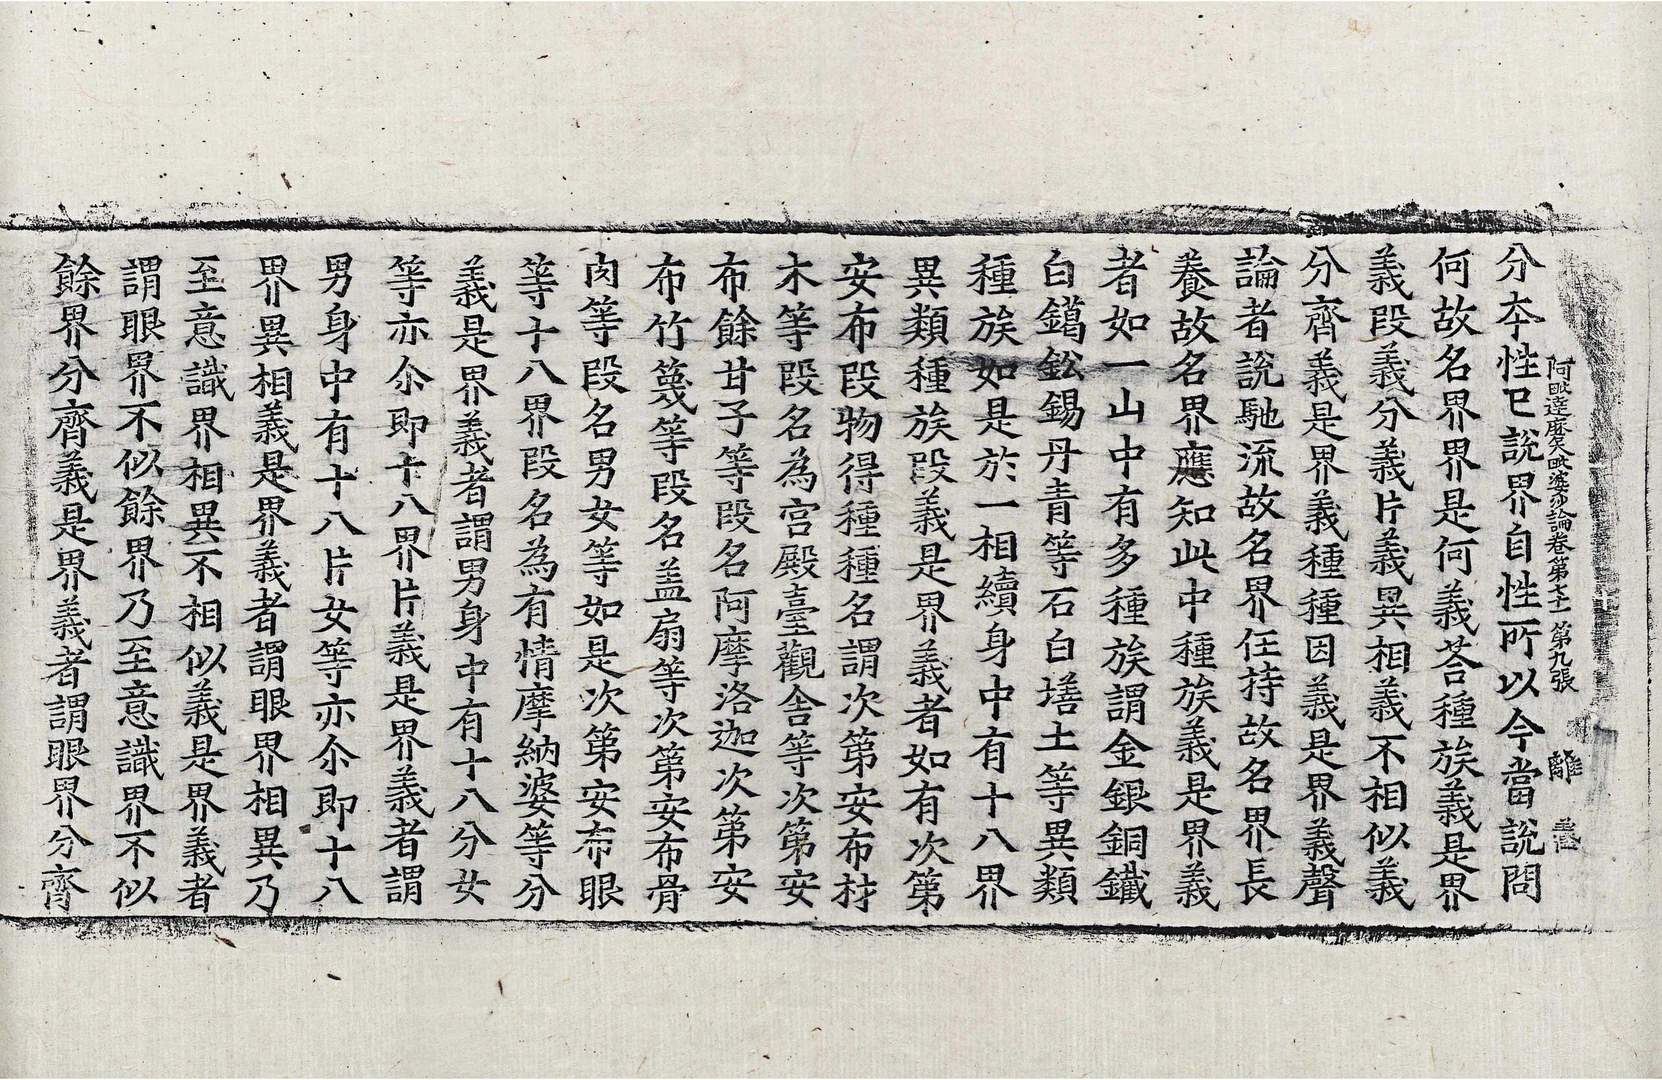 阿毗達磨大毗婆沙論卷第七十一　第九張　離
分本性已說界自性所以今當說問
何故名界界是何義荅種族義是界
義段義分義片義異相義不相似義
分齊義是界義種種因義是界義聲
論者說馳流故名界任持故名界長
養故名界應知此中種族義是界義
者如一山中有多種族謂金銀銅鐵
白鑞鈆錫丹青等石白墡土等異類
種族如是於一相續身中有十八界
異類種族段義是界義者如有次第
安布段物得種種名謂次第安布材
木等段名為宮殿臺觀舍等次第安
布餘甘子等段名阿摩洛迦次第安
布竹篾等段名盖扇等次第安布骨
肉等段名男女等如是次第安布眼
等十八界段名為有情摩納婆等分
義是界義者謂男身中有十八分女
等亦尒即十八界片義是界義者謂
男身中有十八片女等亦尒即十八
界異相義是界義者謂眼界相異乃
至意識界相異不相似義是界義者
謂眼界不似餘界乃至意識界不似
餘界分齊義是界義者謂眼界分齊